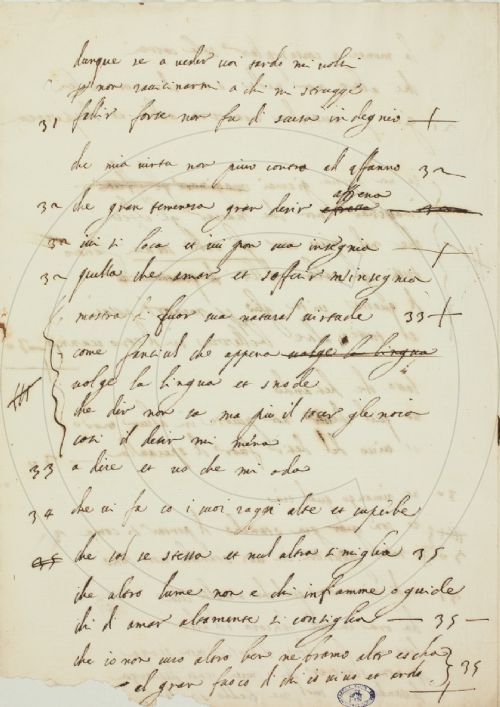 dunque se a veder voi tardo mi volsi
per non ravicinarmi a chi mi strugge
31 fallir forse non fu di scusa indegnio
che mia virtu non puo contra all affanno 32
32 che gran temenza gran desir affrena
32 ivi si loca et ivi pon sua insegnia
32 quella che amar et soffrir m insegnia
mostra di fuor sua natural virtude 33
come fanciul che appena volge la lingua
volge la lingua et snode
che dir non sa ma piu il tacer gle noia
cosi il desir mi mena
33 a dire et vo che mi oda
34 che vi fa co i suoi raggi alte et superbe
che sol se stessa et nul altra simiglia 35
che altro lume non e chi infiamme o guide
chi d amar altamente si consiglia 35
che io non curo altro ben ne bramo altr escha 35
al gran fuoco di chi io vivo et ardo